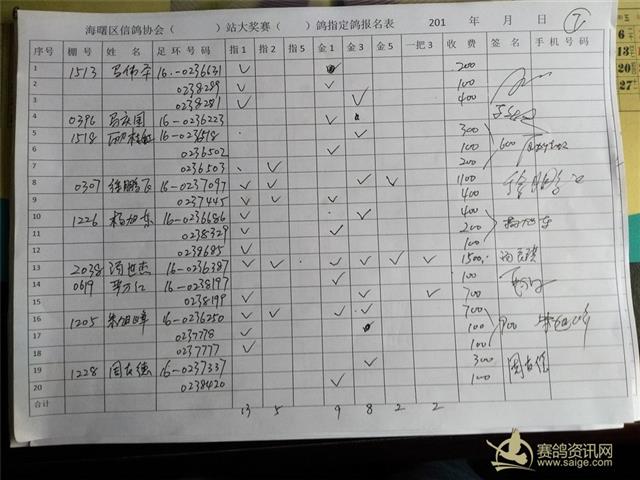 海曙区信鸽协会（ ）站大奖赛（ ）鸽指定鸽报名表 201 年 月 日 ⑦
序号 棚号 姓名 足环号码 指1 指2 指5 金1 金3 金5 一把3 收费 签名 手机号码
1 1513 马伟平 16-0236631 ✓ 200
2 0238289 ✓ ✓ 100
3 0238281 ✓ ✓ 400
4 0396 16-0236223 ✓
5 1518 16-0236518 ✓ 300
6 0236502 ✓ 100 600
7 0236503 ✓ ✓ 200
8 0307 徐鹏飞 16-0237097 ✓ ✓ ✓ ✓ 1100
9 0237445 ✓ ✓ ✓ 400
10 1226 杨旭东 16-0236686 ✓ ✓ 400
11 0238329 ✓ ✓ 200
12 0238685 ✓ 100
13 2038 16-0236387 ✓ ✓ ✓ ✓ ✓ ✓ 1500
14 0619 16-0238197 ✓ 100
15 0238199 ✓ ✓ ✓ 700
16 1205 16-0236250 ✓ ✓ ✓ ✓ 700
17 0237778 ✓ 100 900
18 0237777 ✓ 100
19 1228 周友德 16-0237337 ✓ 300 周友德
20 0238420 ✓ 100
合计 13 5 9 8 2 2
赛鸽资讯网
www.saige.com